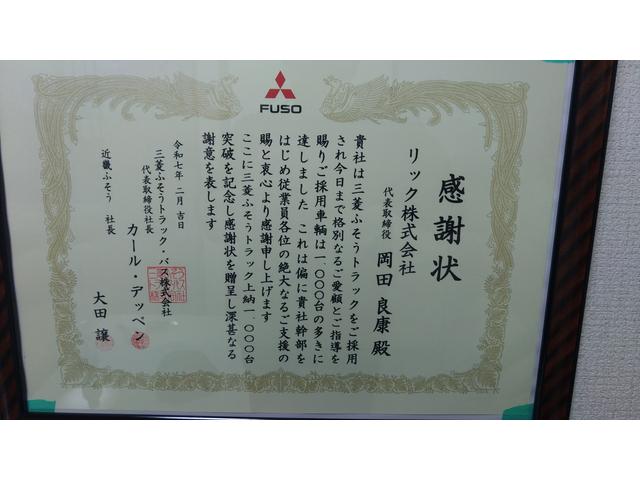 FUSO
感謝状
リック株式会社
代表取締役 岡田良康殿
貴社は三菱ふそうトラックをご採用
され今日まで格別なるご愛顧とご指導を
賜りご採用車輌は一〇〇〇台の多きに
達しました これは偏に貴社幹部を
はじめ従業員各位の絶大なるご支援の
賜と衷心より感謝申し上げます
ここに三菱ふそうトラック上納一〇〇〇台
突破を記念し感謝状を贈呈し深甚なる
謝意を表します
令和七年 二月 吉日
三菱ふそうトラック・バス株式会社
代表取締役社長 カール・デッペン
近畿ふそう 社長 大田 譲